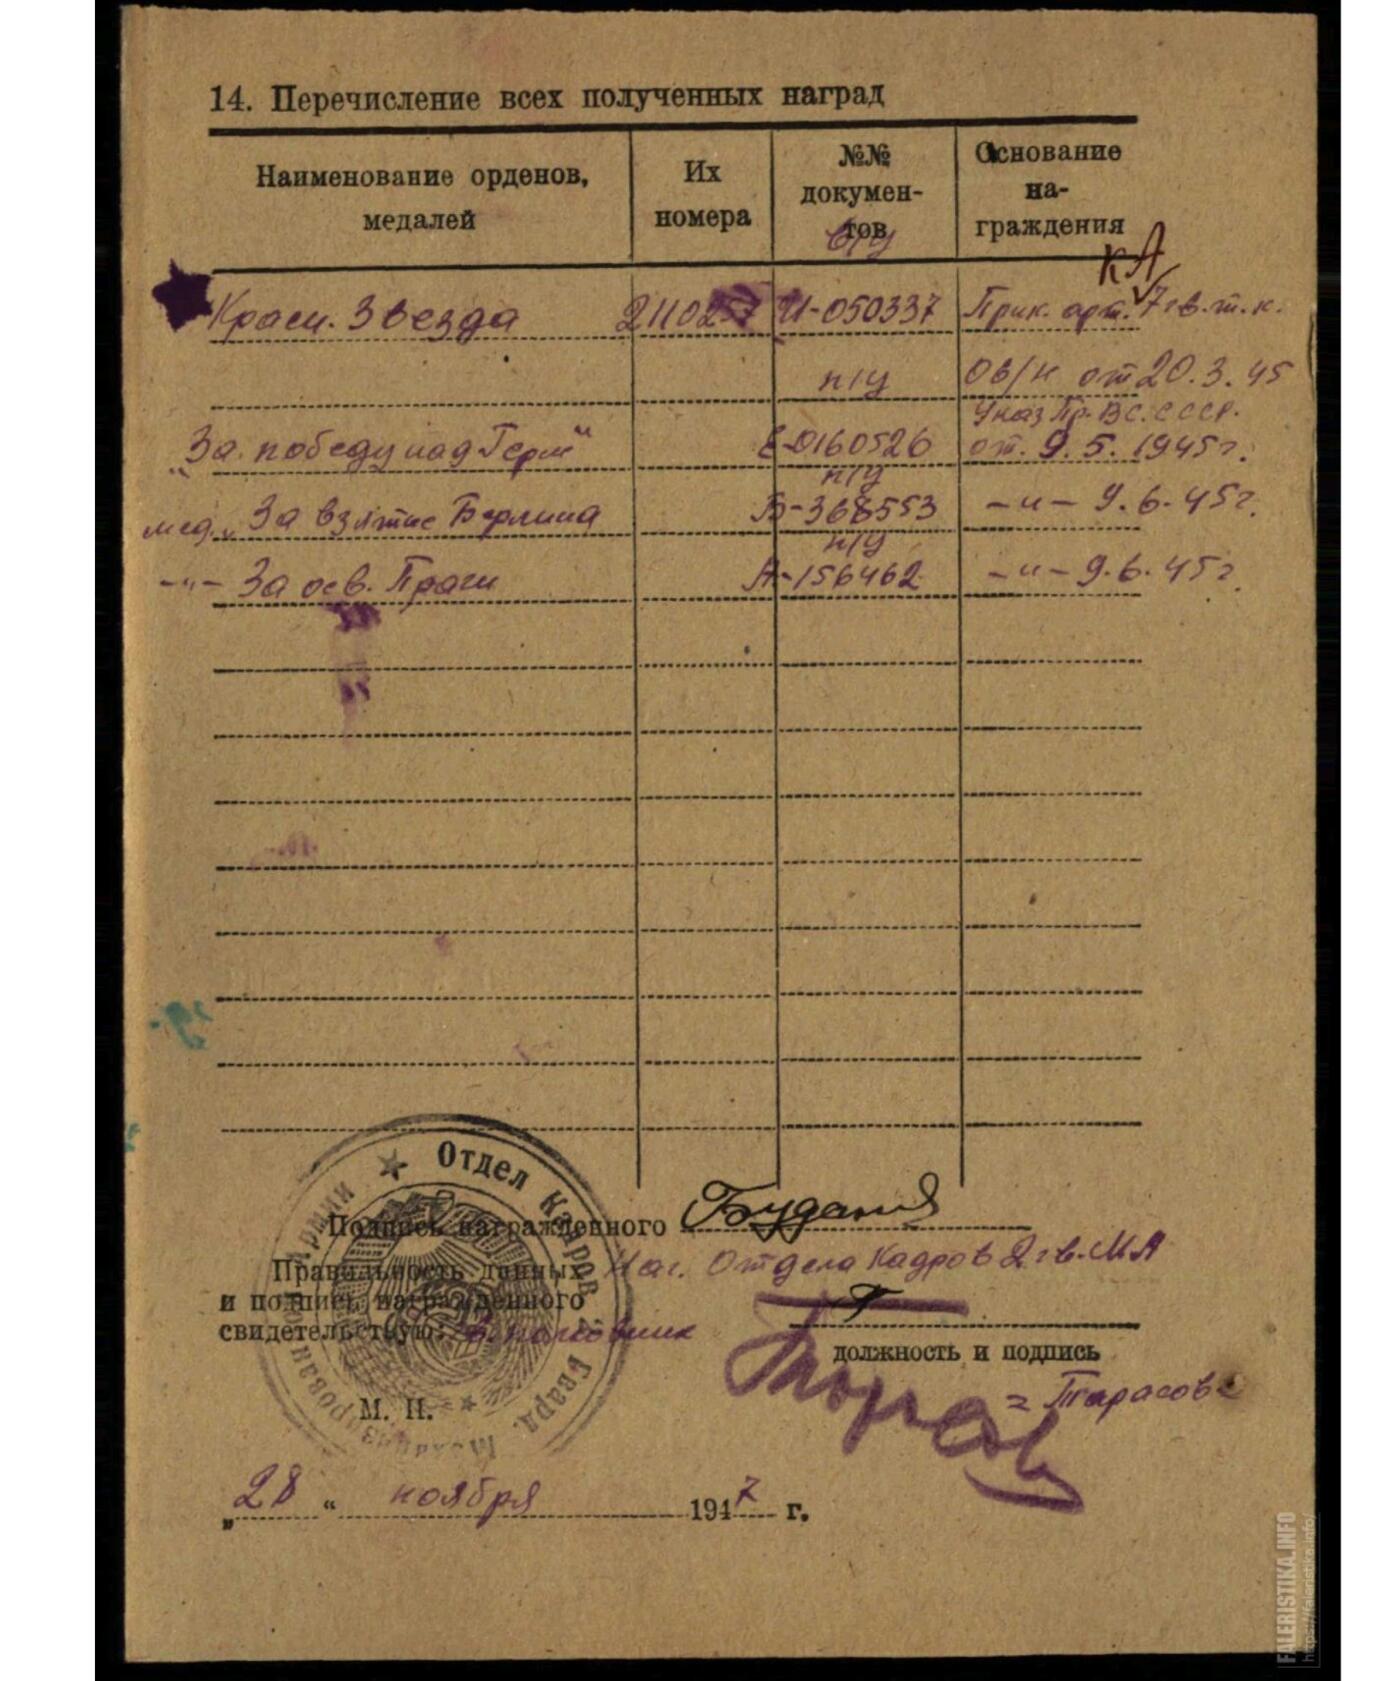 14. Перечисление всех полученных наград
Наименование орденов, медалей
Их номера
№№ докумен-
тов
Основание
на-
граждения
о/у
КА
Красн. Звезда 2110257 И-050337 Прик. арт. 7 гв.т.к.
п/у 08/н от 20.3.45
Указ Пр. ВС. СССР.
„За победу над Герм“ Е-0160526 от. 9.5.1945г.
п/у
мед. „За взятие Берлина Б-368553 -"- 9.6.45г.
п/у
-"- За осв. Праги А-156462 -"- 9.6.45г.
Отдел Кадров 2 Гвард. Механизированной Армии
Подпись награжденного Буданов
Правильность данных Нач. Отдела Кадров 2 гв. МА
и подпись награжденного
свидетельствую: полковник
должность и подпись
М. П. =Тарасов=
„28“ ноября 1947 г.
FALERISTIKA.INFO
https://faleristika.info/